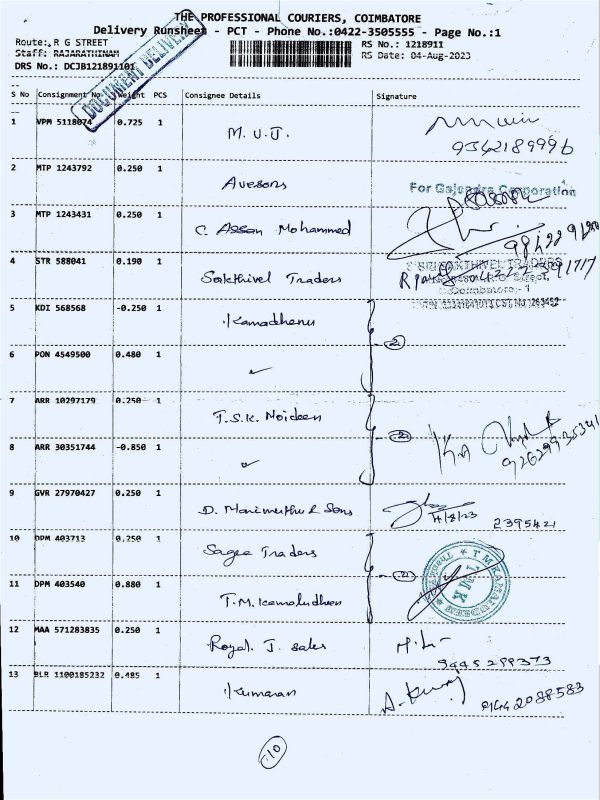 THE PROFESSIONAL COURIERS, COIMBATORE
Delivery Runsheet - PCT - Phone No.:0422-3505555 - Page No.:1
Route: R G STREET
RS No.: 1218911
Staff: RAJARATHINAM
RS Date: 04-Aug-2023
DRS No.: DCJB121891101
DOCUMENT DELIVERY
S No Consignment No. Weight PCS Consignee Details Signature
1 VPM 5118074 0.725 1 M. U. J.
9342189996
2 MTP 1243792 0.250 1 Avesons
For Gajendra Corporation
3 MTP 1243431 0.250 1 C. Assan Mohammed
4 STR 588041 0.190 1 Sakthivel Traders
SRI SAKTHIVEL TRADERS
Coimbatore - 1
5 KDI 568568 -0.250 1 Kamadhenu
2
6 PON 4549500 0.480 1
7 ARR 10297179 0.250 1 T.S.K. Moideen
2
8 ARR 30351744 -0.850 1
9 GVR 27970427 0.250 1 D. Marimuthu & Sons
2395421
10 DPM 403713 0.250 1 Sagee Traders
2
TMK
11 DPM 403540 0.880 1 T.M. Kamaludheen
12 MAA 571283835 0.250 1 Royal J. Sales
9445299373
13 BLR 1100185232 0.485 1 Kumaran
9442088583
10